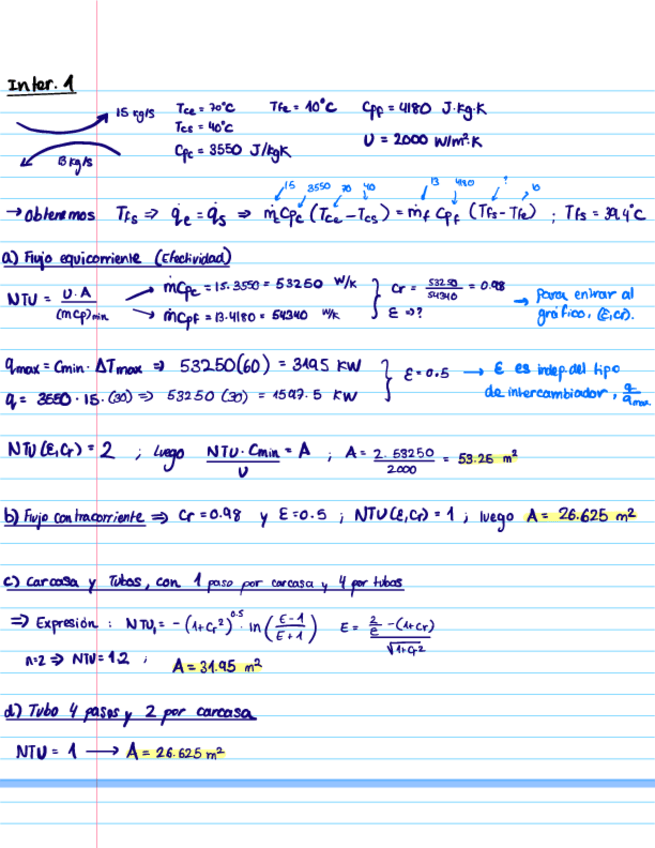 Inter. 1
15 kg/s Tce = 70°C Tfe = 10°C Cpf = 4180 J·kg·K
Tcs = 40°C
13 kg/s Cpc = 3550 J/kgK U = 2000 W/m²·K
15 3550 70 40 13 4180 ? 10
→ Obtenemos Tfs ⇒ q̇e = q̇s ⇒ ṁcCpc (Tce - Tcs) = ṁf Cpf (Tfs - Tfe) ; Tfs = 39,4°C
a) Flujo equicorriente (Efectividad)
NTU = U·A / (mcp)min → ṁCpc = 15·3550 = 53250 W/K } Cr = 53250/54340 = 0.98 → Para entrar al
→ ṁCpf = 13·4180 = 54340 W/K } ε ⇒? gráfico, (ε,cr).
qmax = Cmin · ΔTmax ⇒ 53250(60) = 3195 KW } ε = 0.5 → ε es indep. del tipo
q = 3550 · 15 · (30) ⇒ 53250 (30) = 1597.5 KW de intercambiador, q/qmax
NTU (ε,Cr) = 2 ; luego NTU·Cmin / U = A ; A = 2·53250 / 2000 = 53.25 m²
b) Flujo contracorriente ⇒ Cr = 0.98 y ε = 0.5 ; NTU(ε,Cr) = 1 ; luego A = 26.625 m²
c) Carcasa y Tubos, con 1 paso por carcasa y 4 por tubos
⇒ Expresión : NTU₁ = -(1+Cr²)^0.5 · ln (E-1 / E+1) E = (2/ε -(1+Cr)) / √1+Cr²
n=2 ⇒ NTU = 1.2 ; A = 31.95 m²
d) Tubo 4 pasos y 2 por carcasa
NTU = 1 → A = 26.625 m²